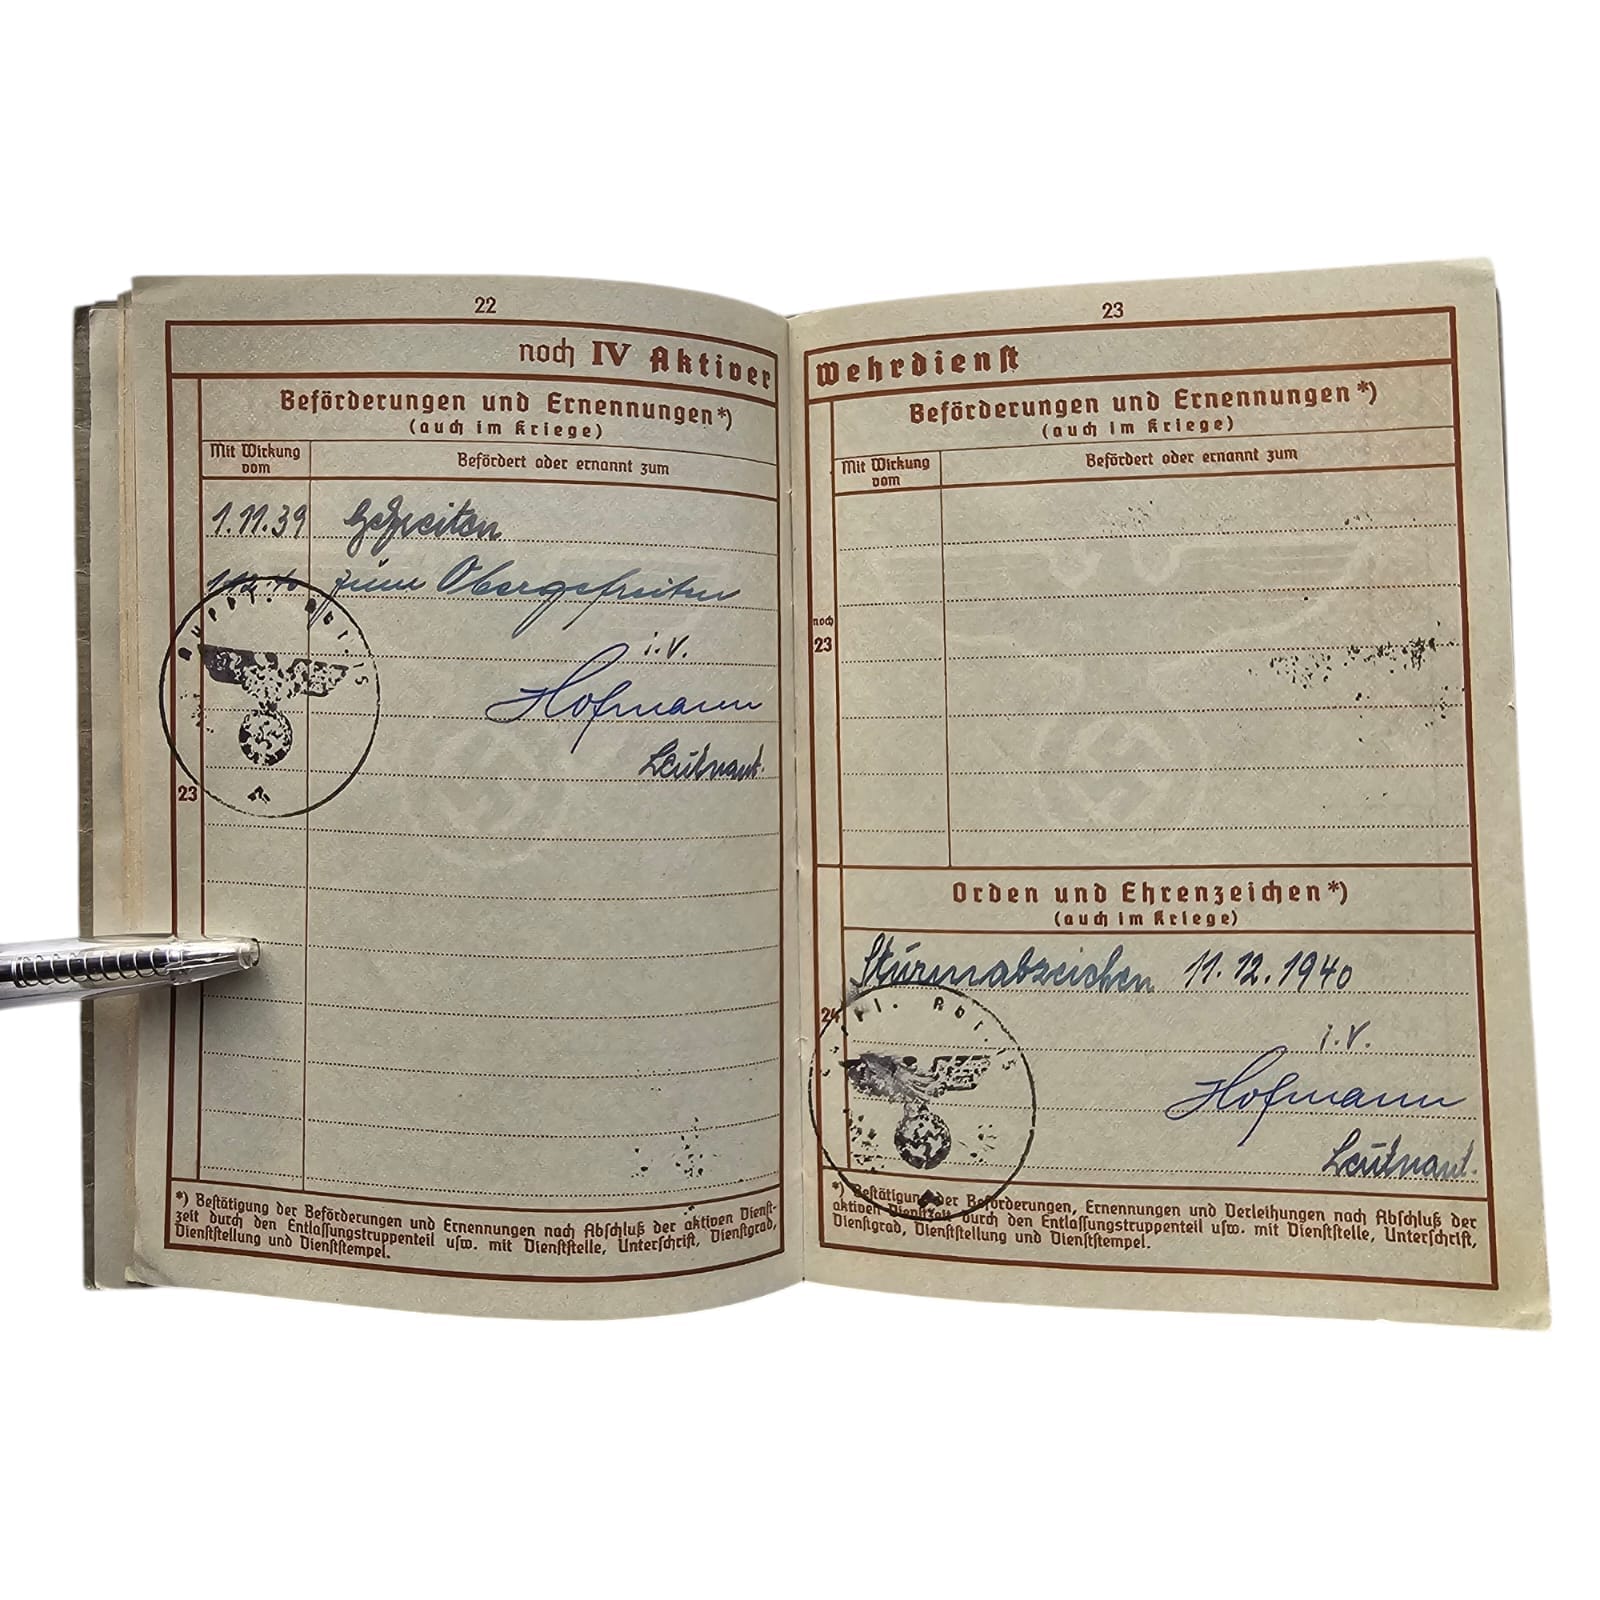 22
noch IV Aktiver
Beförderungen und Ernennungen*)
(auch im Kriege)
Mit Wirkung
vom
Befördert oder ernannt zum
1.11.39 Gefreiten
zum Obergefreiten
i.V.
Hofmann
Leutnant.
23
*) Bestätigung der Beförderungen und Ernennungen nach Abschluß der aktiven Dienst-
zeit durch den Entlassungstruppenteil usw. mit Dienststelle, Unterschrift, Dienstgrad,
Dienststellung und Dienststempel.
23
Wehrdienst
Beförderungen und Ernennungen*)
(auch im Kriege)
Mit Wirkung
vom
Befördert oder ernannt zum
noch
23
Orden und Ehrenzeichen*)
(auch im Kriege)
Sturmabzeichen 11.12.1940
24
i.V.
Hofmann
Leutnant.
*) Bestätigung der Beförderungen, Ernennungen und Verleihungen nach Abschluß der
aktiven Dienstzeit durch den Entlassungstruppenteil usw. mit Dienststelle, Unterschrift,
Dienstgrad, Dienststellung und Dienststempel.